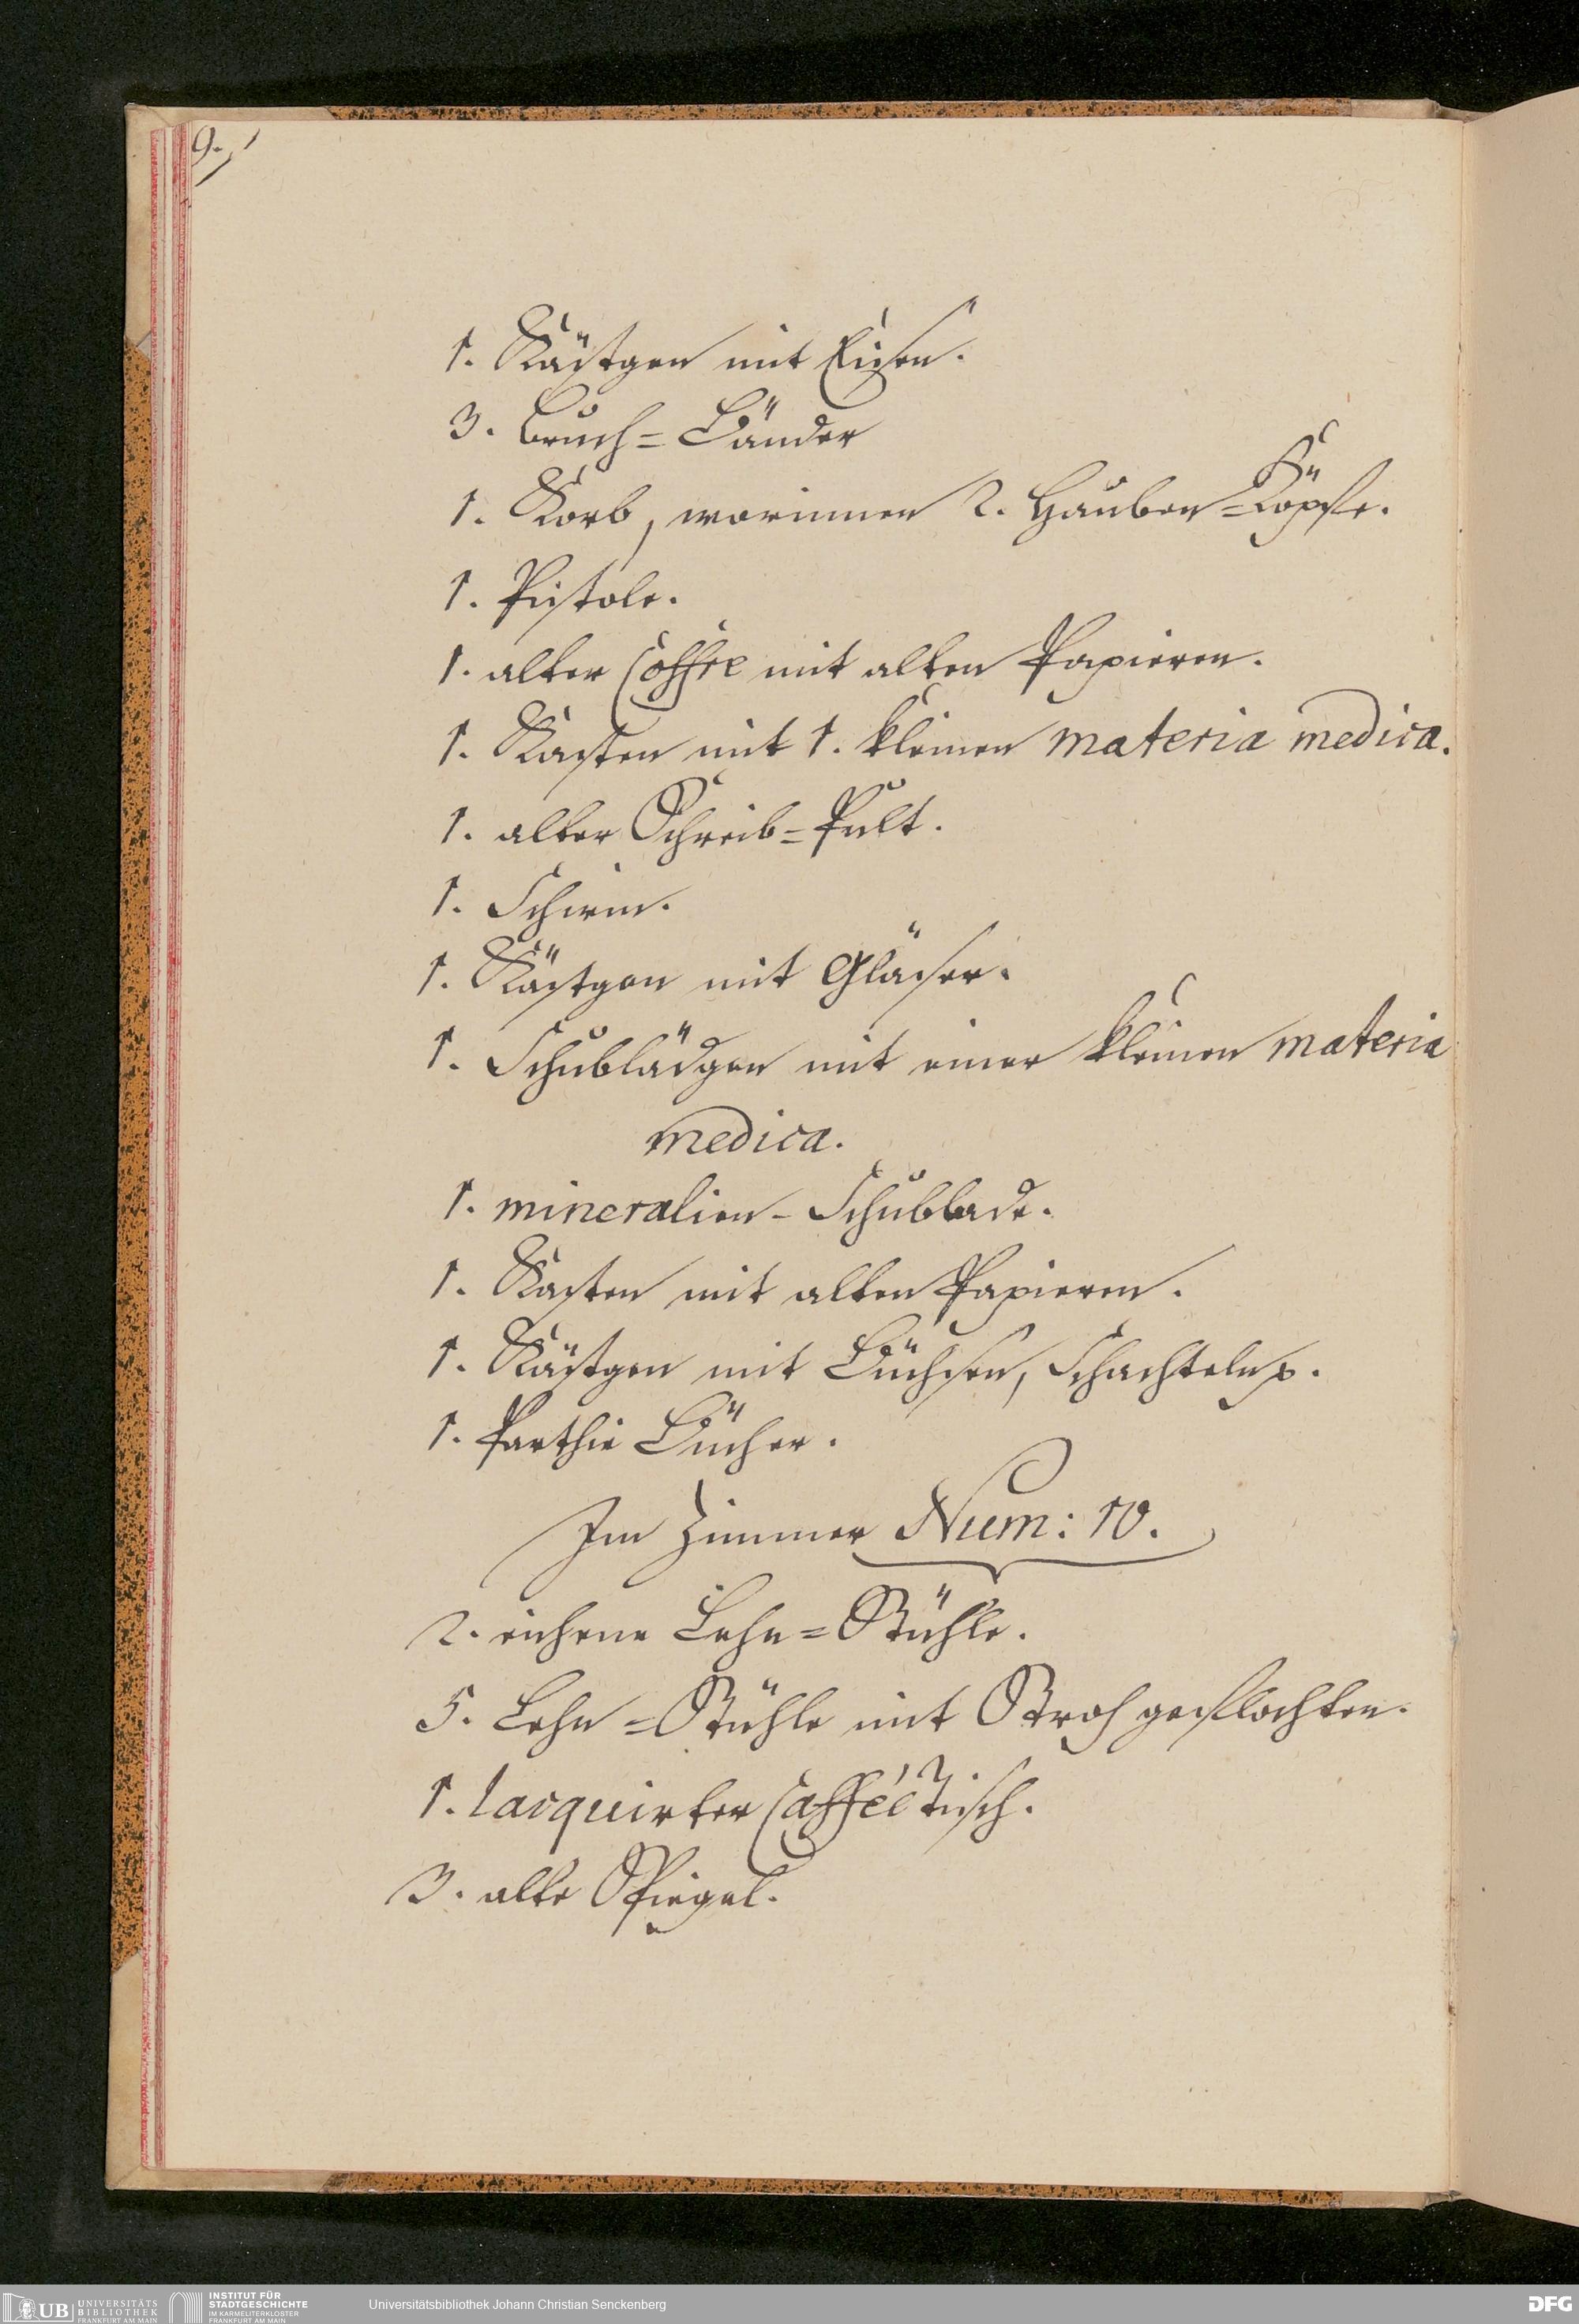 9.
1. Kästgen mit Eisen.
3. Bruch=Bänder
1. Korb, worinnen 2. Hauben=Köpffe.
1. Pistole.
1. alter Coffre mit alten Papieren.
1. Kasten mit 1. kleinen materia medica.
1. alter Schreib=Pult.
1. Schirm.
1. Kästgen mit Gläser.
1. Schublädgen mit einer kleinen materia
medica.
1. mineralien-Schublade.
1. Kasten mit alten Papieren.
1. Kästgen mit Büchsen, Schachteln p.
1. Parthie Bücher.
Im Zimmer Num: 10.
2. eichene Lehn=Stühle.
5. Lehn=Stühle mit Stroh geflochten.
1. lacquirter Caffée Tisch.
3. alte Spiegel.
UB UNIVERSITÄTS BIBLIOTHEK FRANKFURT AM MAIN
INSTITUT FÜR STADTGESCHICHTE IM KARMELITERKLOSTER FRANKFURT AM MAIN
Universitätsbibliothek Johann Christian Senckenberg
DFG